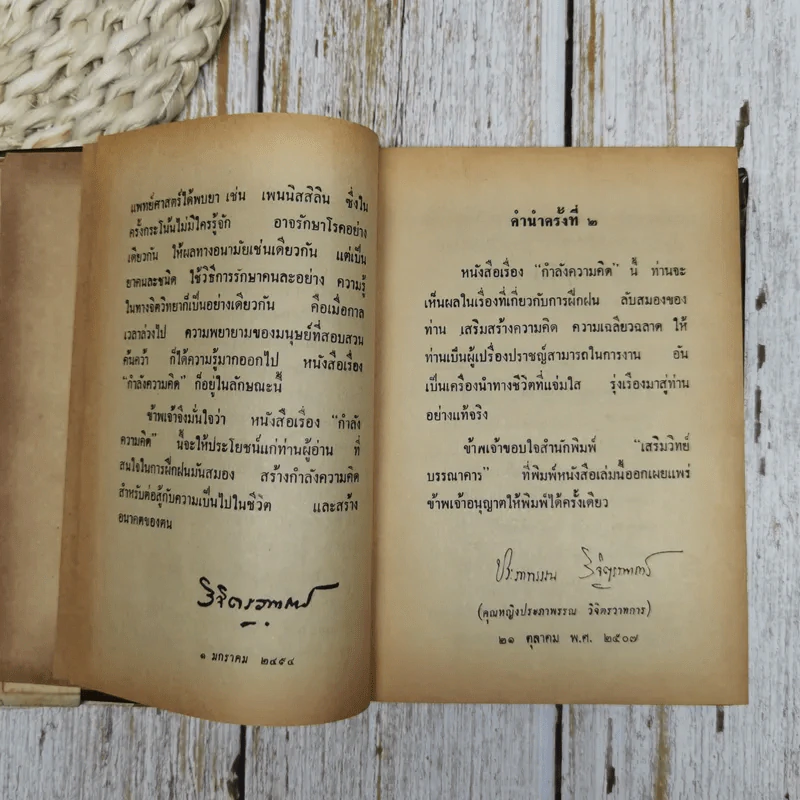 แพทย์ศาสตร์ได้พบยา เช่น เพนนิสสิลิน ซึ่งใน
ครั้งกระโน้นไม่มีใครรู้จัก อาจรักษาโรคอย่าง
เดียวกัน ให้ผลทางอนามัยเช่นเดียวกัน แต่เป็น
ยาคนละชนิด ใช้วิธีการรักษาคนละอย่าง ความรู้
ในทางจิตวิทยาก็เป็นอย่างเดียวกัน คือเมื่อกาล
เวลาล่วงไป ความพยายามของมนุษย์ที่สอบสวน
ค้นคว้า ก็ได้ความรู้มากออกไป หนังสือเรื่อง
“กำลังความคิด” ก็อยู่ในลักษณะนี้
ข้าพเจ้าจึงมั่นใจว่า หนังสือเรื่อง “กำลัง
ความคิด” นี้จะให้ประโยชน์แก่ท่านผู้อ่าน ที่
สนใจในการฝึกฝนมันสมอง สร้างกำลังความคิด
สำหรับต่อสู้กับความเป็นไปในชีวิต และสร้าง
อนาคตของตน
วิจิตรวาทการ
๑ มกราคม ๒๔๙๔
คำนำครั้งที่ ๒
หนังสือเรื่อง “กำลังความคิด” นี้ ท่านจะ
เห็นผลในเรื่องที่เกี่ยวกับการฝึกฝน ลับสมองของ
ท่าน เสริมสร้างความคิด ความเฉลียวฉลาด ให้
ท่านเป็นผู้เปรื่องปราชญ์สามารถในการงาน อัน
เป็นเครื่องนำทางชีวิตที่แจ่มใส รุ่งเรืองมาสู่ท่าน
อย่างแท้จริง
ข้าพเจ้าขอบใจสำนักพิมพ์ “เสริมวิทย์
บรรณาคาร” ที่พิมพ์หนังสือเล่มนี้ออกเผยแพร่
ข้าพเจ้าอนุญาตให้พิมพ์ได้ครั้งเดียว
ประภาพรรณ วิจิตรวาทการ
(คุณหญิงประภาพรรณ วิจิตรวาทการ)
๒๑ ตุลาคม พ.ศ. ๒๕๐๗